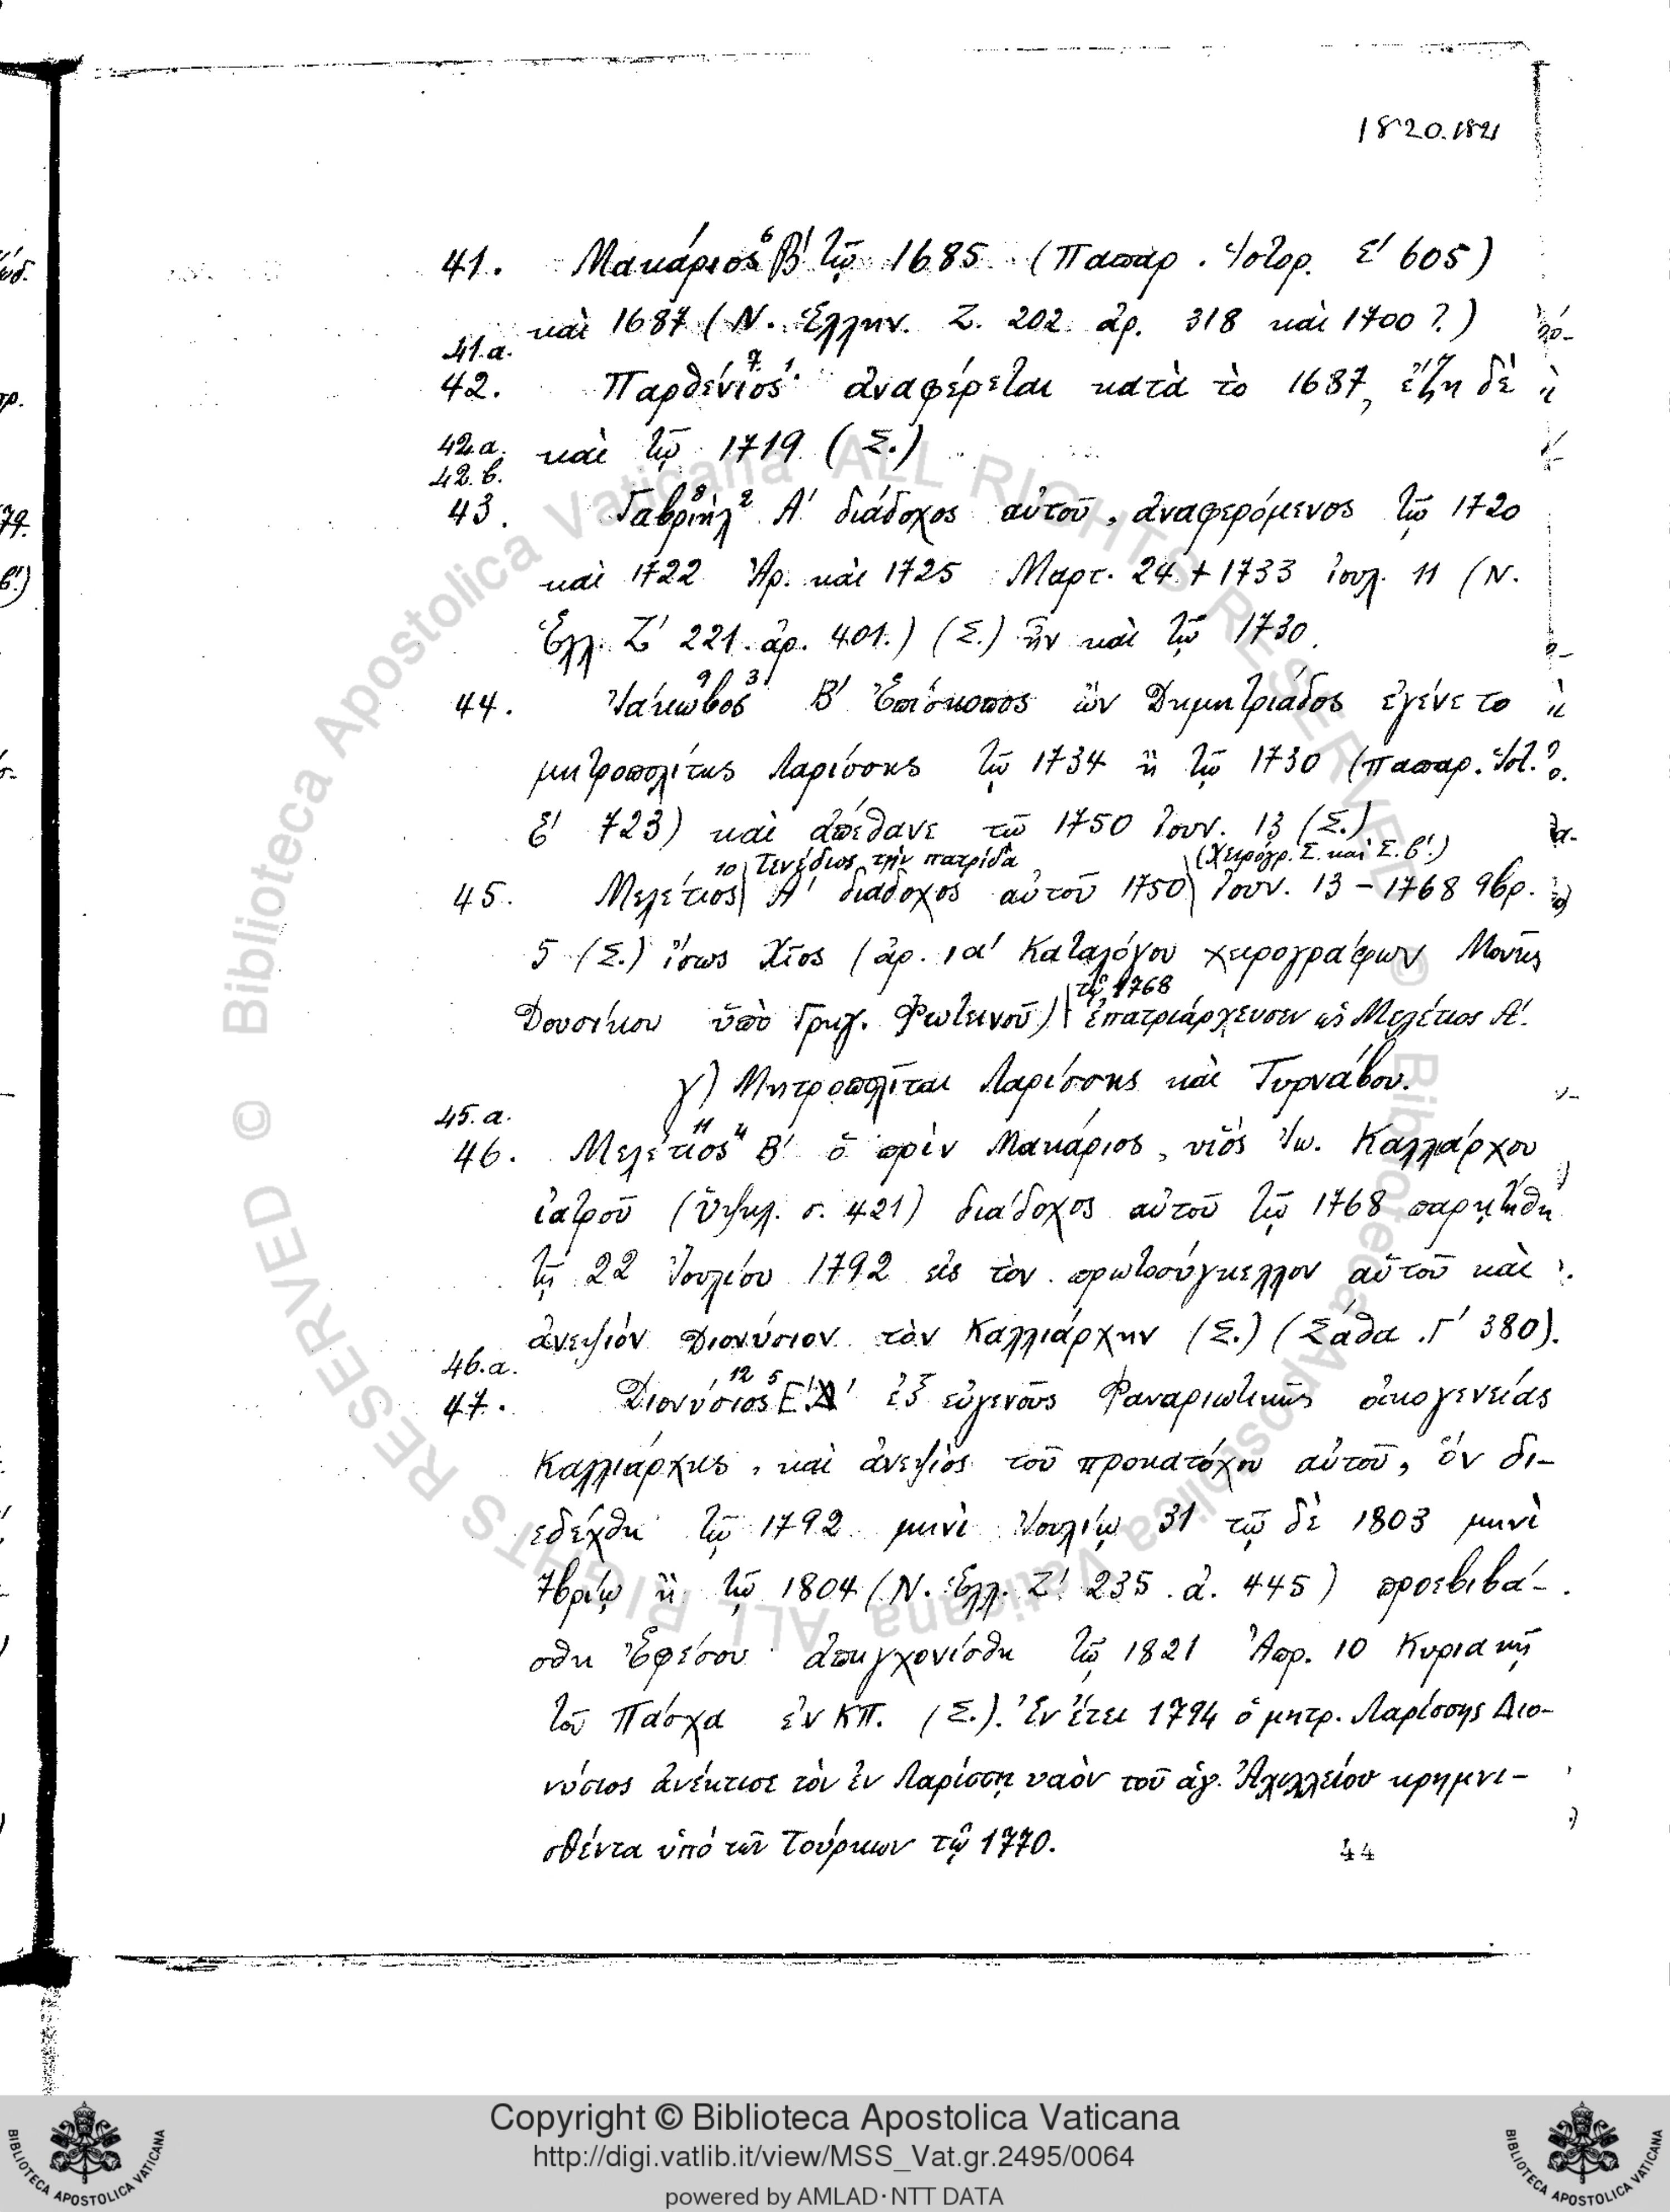 1820.1821
41. Μακάριος⁶ Β' τῷ 1685 (Παπαρ. Ἱστορ. Ε' 605)
καὶ 1687 (Ν. Ἑλλην. Ζ. 202. ἀρ. 318 καὶ 1700 ?.)
41.α.
42. Παρθένιος⁷ ¹ ἀναφέρεται κατὰ τὸ 1687, ἔζη δὲ
42.α. καὶ τῷ 1719 (Σ.)
42.β.
43. Γαβριὴλ⁸ ² Α' διάδοχος αὐτοῦ, ἀναφερόμενος τῷ 1720
καὶ 1722 Ἀρ. καὶ 1725 Μαρτ. 24 + 1733 ἰουλ. 11 (Ν.
Ἑλλ. Ζ' 221. ἀρ. 401.) (Σ.) ἦν καὶ τῷ 1730.
44. Ἰάκωβος⁹ ³ Β' Ἐπίσκοπος ὢν Δημητριάδος ἐγένετο
μητροπολίτης Λαρίσσης τῷ 1734 ἢ τῷ 1730 (Παπαρ. Ἱστ.
Ε' 723) καὶ ἀπέθανε τῷ 1750 Ἰουν. 13 (Σ.)
10 Τενέδιος τὴν πατρίδα (Χειρόγρ. Σ. καὶ Σ. β'.)
45. Μελέτιος Α' διάδοχος αὐτοῦ 1750 Ἰουν. 13 – 1768 9βρ.
5 (Σ.) ἴσως Χῖος (ἀρ. ια' Καταλόγου χειρογράφων Μονῆς
τῷ 1768
Δουσίκου ὑπὸ Γρηγ. Φωτεινοῦ) ἐπατριάρχευσεν ὡς Μελέτιος Α'.
γ) Μητροπολῖται Λαρίσσης καὶ Τυρνάβου.
45.α.
46. Μελέτιος¹¹ ⁴ Β' ὁ πρὶν Μακάριος, υἱὸς Ἰω. Καλλιάρχου
ἰατροῦ (Ὑψηλ. σ. 421) διάδοχος αὐτοῦ τῷ 1768 παρῃτήθη
τῇ 22 Ἰουλίου 1792 εἰς τὸν πρωτοσύγκελλον αὐτοῦ καὶ
ἀνεψιόν Διονύσιον τὸν Καλλιάρχην (Σ.) (Σάθα Γ' 380).
46.α.
47. Διονύσιος¹² ⁵ Ε' Δ' ἐξ εὐγενοῦς Φαναριωτικῆς οἰκογενείας
Καλλιάρχης, καὶ ἀνεψιὸς τοῦ προκατόχου αὐτοῦ, ὅν δι-
εδέχθη τῷ 1792 μηνὶ Ἰουλίῳ 31 τῷ δὲ 1803 μηνὶ
7βρίῳ ἢ τῷ 1804 (Ν. Ἑλλ. Ζ' 235 ἀ. 445) προεβιβά-
σθη Ἐφέσου ἀπηγχονίσθη τῷ 1821 Ἀπρ. 10 Κυριακῇ
τοῦ Πάσχα ἐν ΚΠ. (Σ.). Ἐν ἔτει 1794 ὁ μητρ. Λαρίσσης Διο-
νύσιος ἀνέκτισε τὸν ἐν Λαρίσσῃ ναὸν τοῦ ἁγ. Ἀχιλλείου κρημνι-
σθέντα ὑπό τῶν Τούρκων τῷ 1770.
44
© Biblioteca Apostolica Vaticana ALL RIGHTS RESERVED
© Biblioteca Apostolica Vaticana ALL RIGHTS RESERVED
Copyright © Biblioteca Apostolica Vaticana
http://digi.vatlib.it/view/MSS_Vat.gr.2495/0064
powered by AMLAD·NTT DATA
BIBLIOTECA APOSTOLICA VATICANA
BIBLIOTECA APOSTOLICA VATICANA